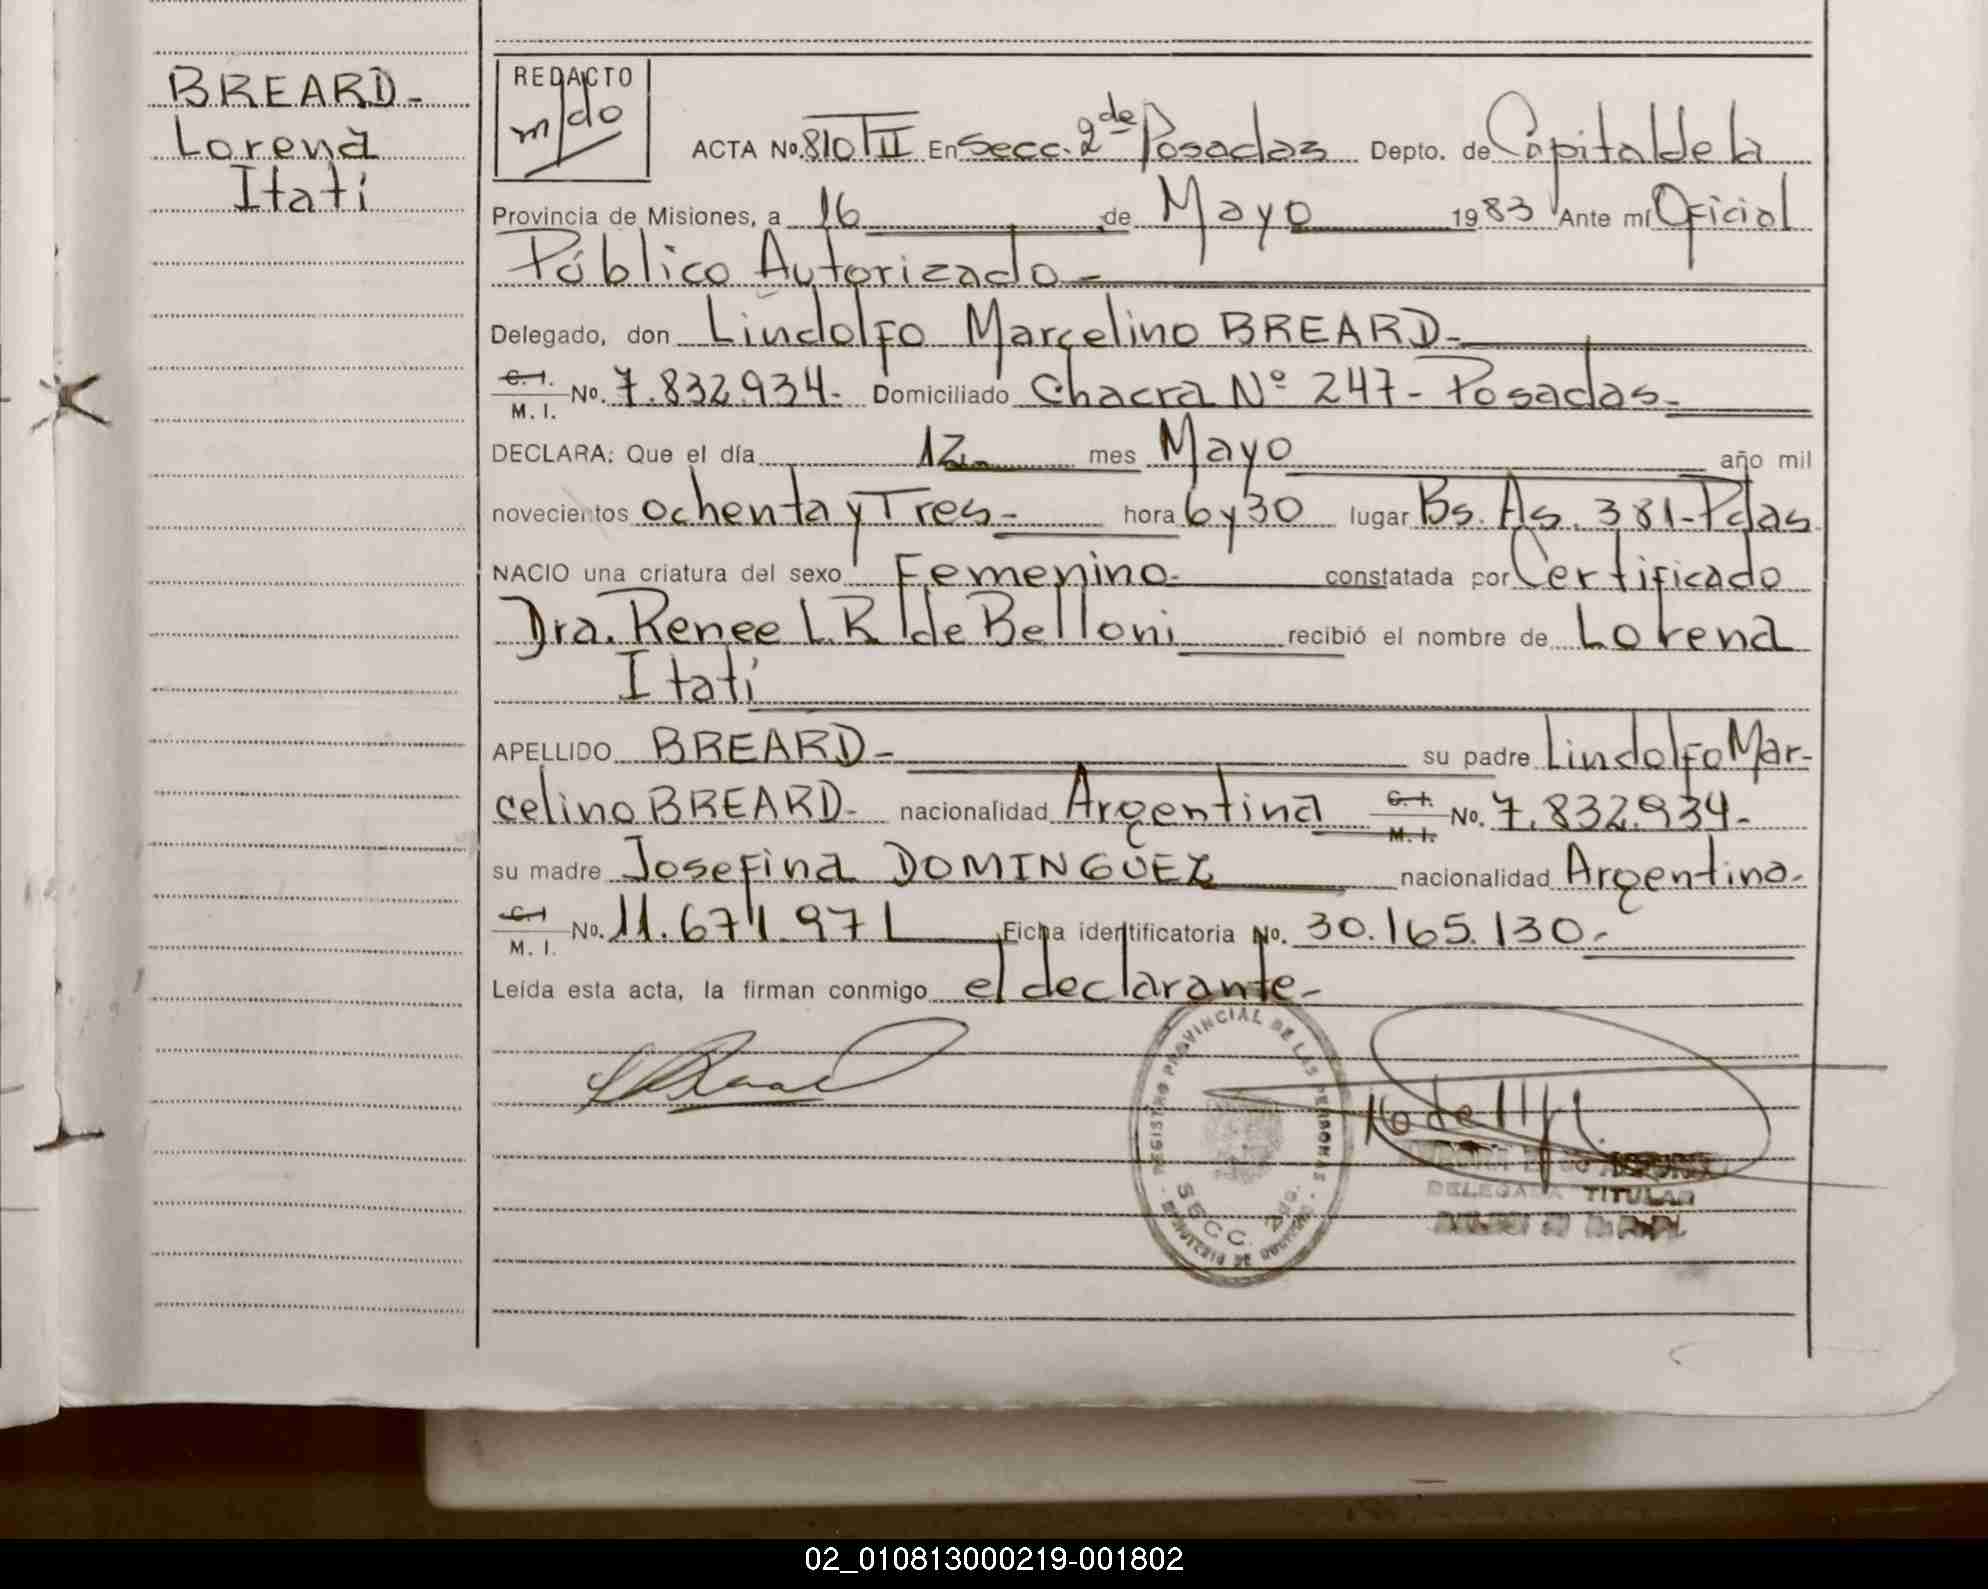 BREARD-
Lorena
Itatí
REDACTO
m/do
ACTA No. 810 TII En Secc. 2de Posadas Depto. de Capital de la
Provincia de Misiones, a 16 de Mayo 1983 Ante mí Oficial
Público Autorizado-
Delegado, don Lindolfo Marcelino BREARD-
C. I.
M. I. No. 7.832.934- Domiciliado Chacra Nº 247- Posadas-
DECLARA: Que el día 12 mes Mayo año mil
novecientos ochenta y Tres- hora 6 y 30 lugar Bs. As. 381-Pdas
NACIO una criatura del sexo Femenino- constatada por Certificado
Dra. Renee L. R. de Belloni recibió el nombre de Lorena
Itatí
APELLIDO BREARD- su padre Lindolfo Mar-
celino BREARD- nacionalidad Argentina C. I.
M. I. No. 7.832.934-
su madre Josefina DOMINGUEZ nacionalidad Argentina-
C. I
M. I. No. 11.671.971 Ficha identificatoria No. 30.165.130-
Leída esta acta, la firman conmigo el declarante-
REGISTRO PROVINCIAL DE LAS PERSONAS
SECC. 2da.
DELEGADA TITULAR
02_010813000219-001802